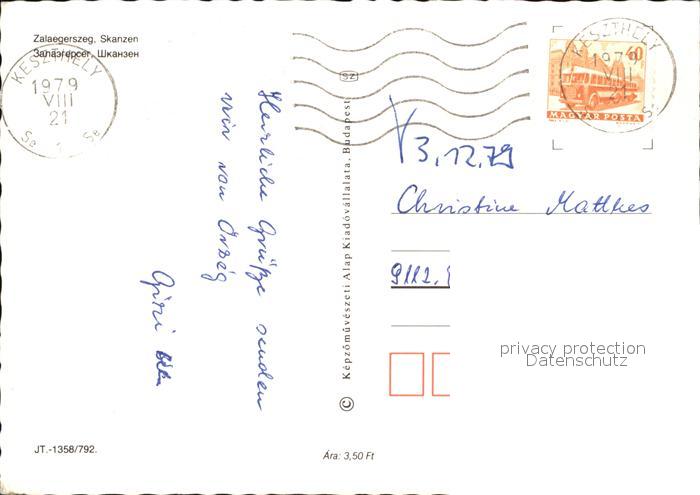 Zalaegerszeg, Skanzen
Залаэгерсег, Шканзен
KESZTHELY
1979
VIII
21
Herzliche Grüße senden
wir von Őrség
KESZTHELY
1979
VIII
21
40
MAGYAR POSTA
3.12.79
Christine Matthes
9112.
SZ
© Képzőművészeti Alap Kiadóvállalata, Budapest
privacy protection
Datenschutz
JT.-1358/792.
Ára: 3,50 Ft